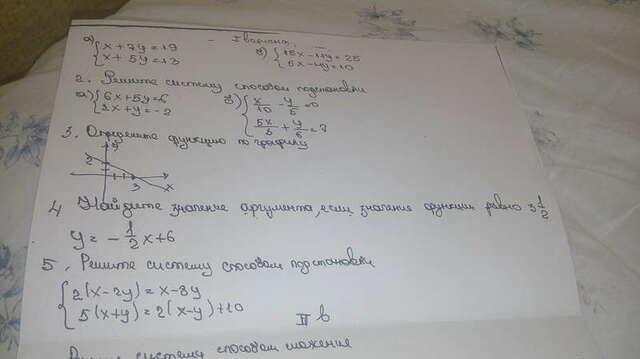 - I вариант.
а) { x + 7y = 19
x + 5y = 13
б) { 15x - 11y = 25
5x - 4y = 10
2. Решите систему способом подстановки
а) { 6x + 5y = 6
2x + y = -2
б) { x/10 - y/5 = 0
5x/3 + y/6 = 3
3. Определите функцию по графику
y
2
3
x
4 Найдите значение аргумента, если значение функции равно 3 1/2
y = - 1/2 x + 6
5. Решите систему способом подстановки
{ 2(x - 2y) = x - 8y
5(x + y) = 2(x - y) + 10
II в
систему способом сложения